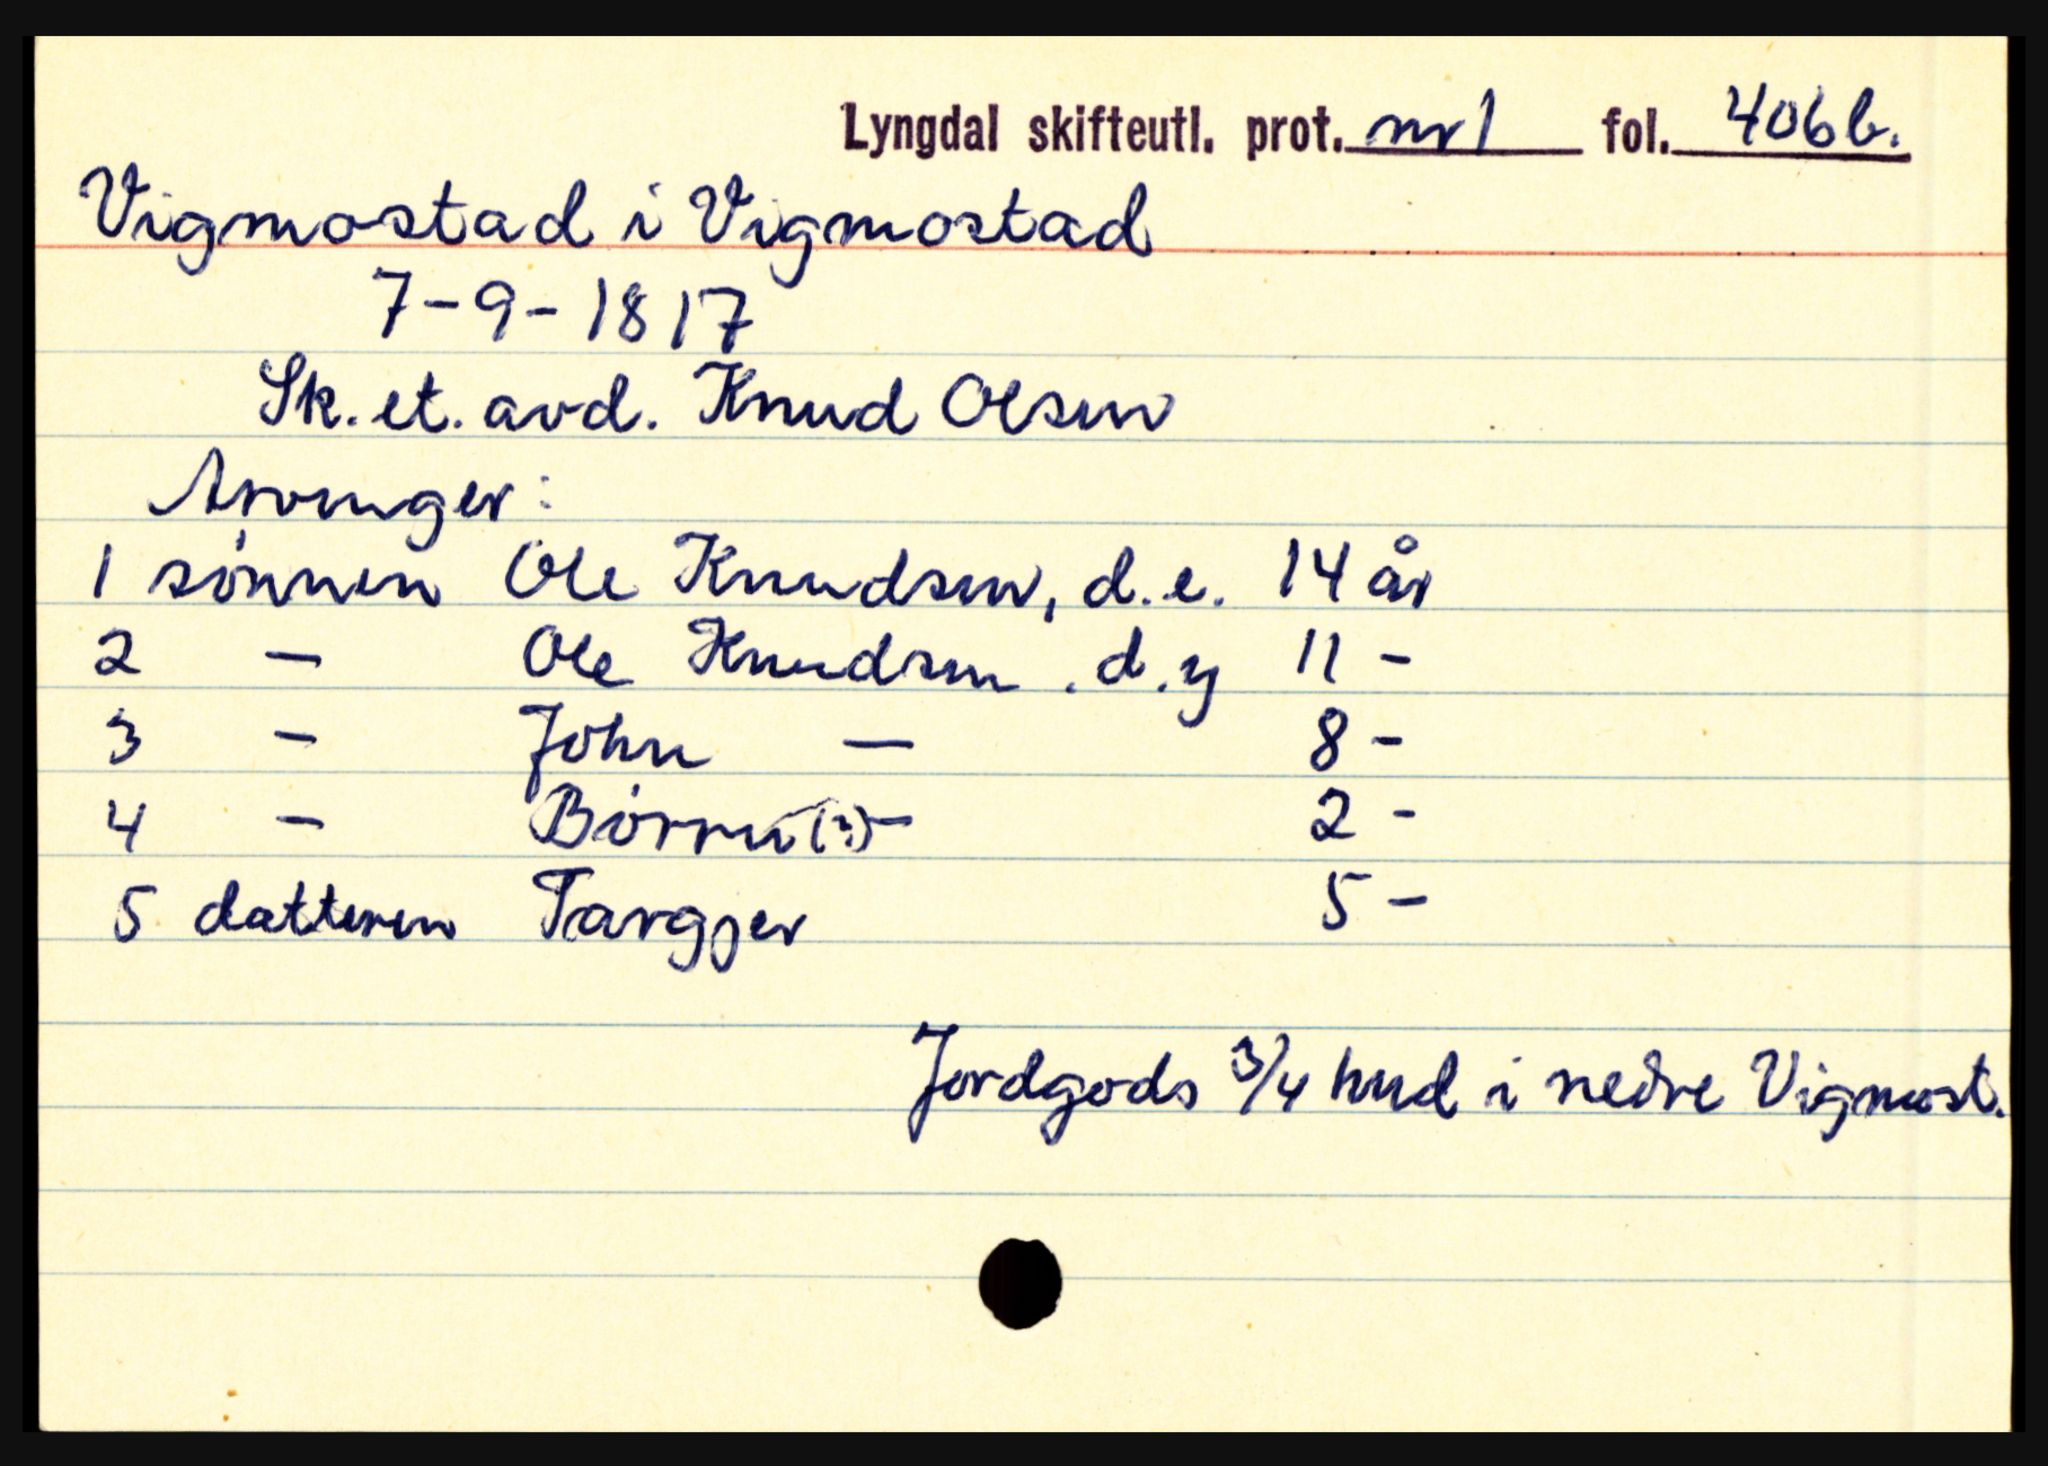 Lyngdal skifteutl. prot. nr 1 fol. 406 b.
Vigmostad i Vigmostad
7-9-1817
Sk. et. avd. Knud Olsen
Arvinger:
1 sønnen Ole Knudsen, d.e. 14 år
2 — Ole Knudsen . d.y 11 -
3 — John — 8 -
4 — Børru (?) — 2 -
5 datteren Targjer 5 -
Jordgods 3/4 hud i nedre Vigmost.